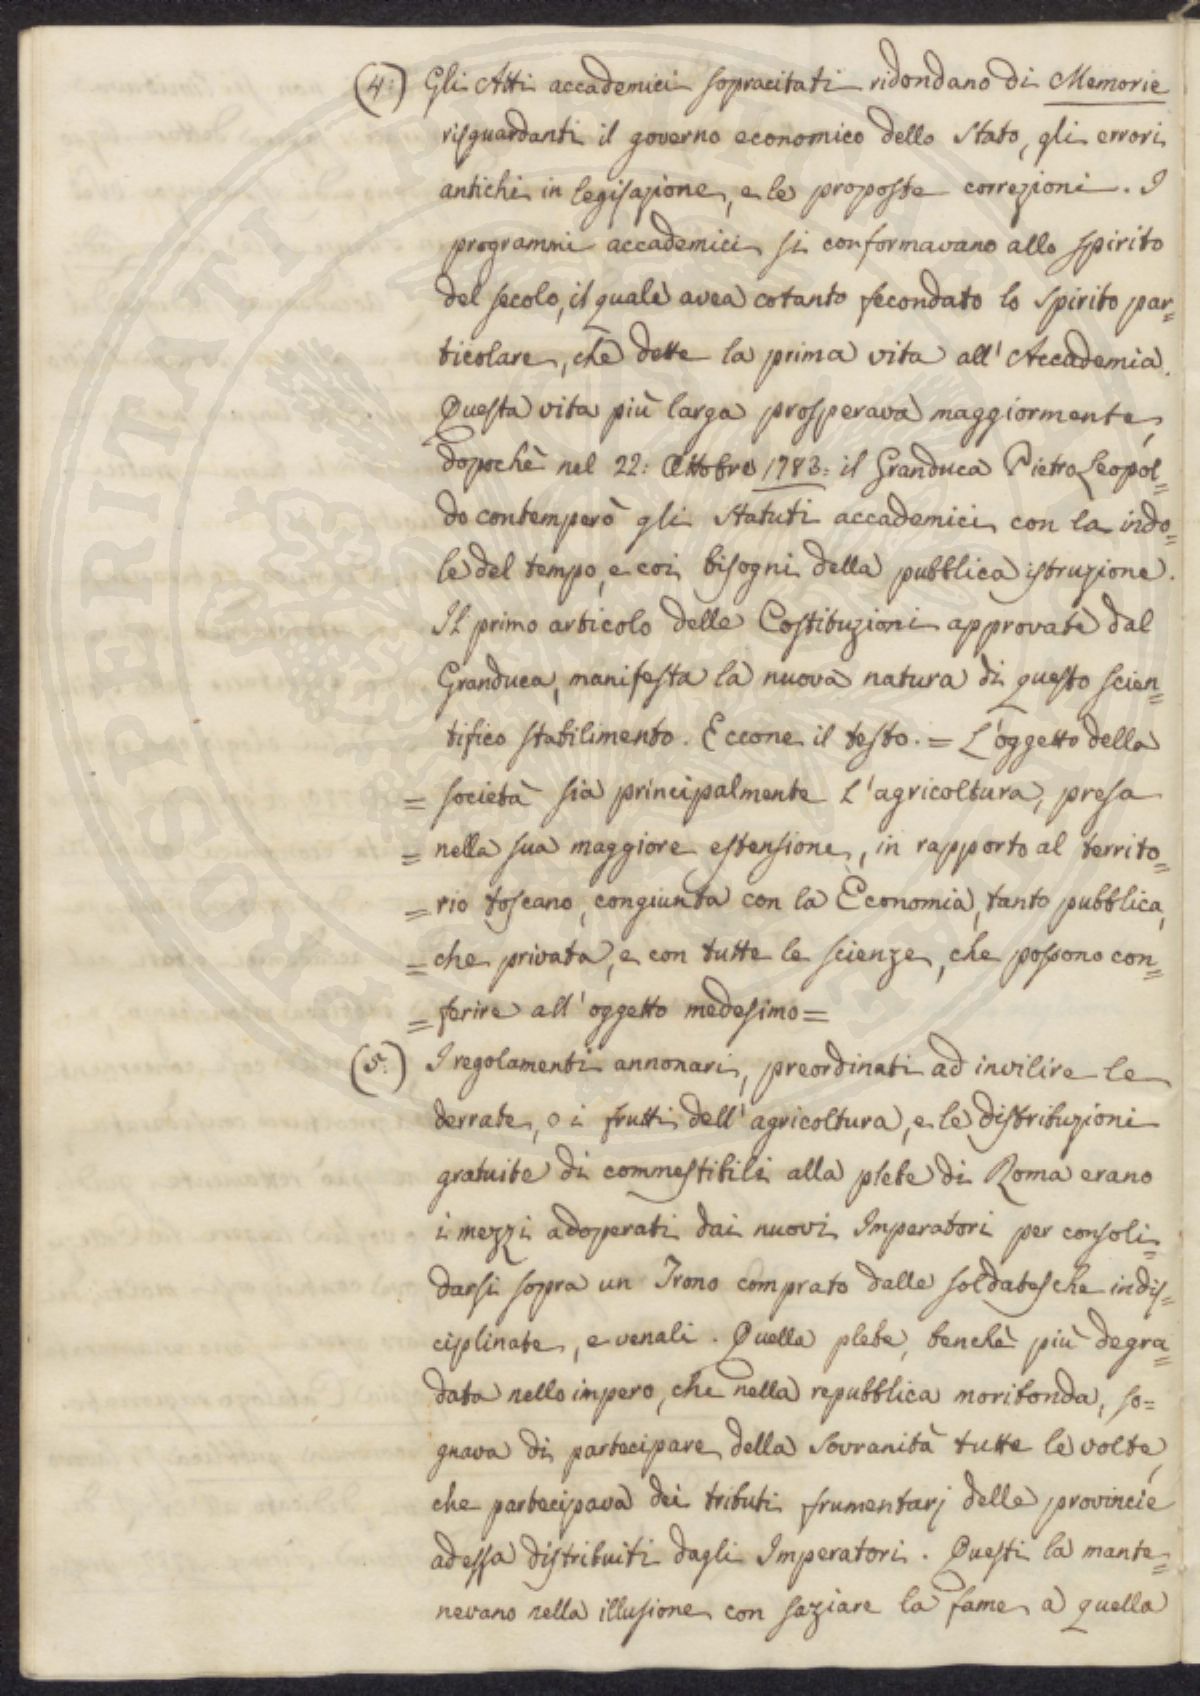 (4:) Gli Atti accademici sopracitati ridondano di Memorie
risguardanti il governo economico dello Stato, gli errori
antichi in legislazione, e le proposte correzioni. I
programmi accademici si conformavano allo spirito
del secolo, il quale avea cotanto fecondato lo spirito par=
ticolare, che dette la prima vita all'Accademia.
Questa vita più larga prosperava maggiormente,
dopochè nel 22: Ottobre 1783: il Granduca Pietro Leopol=
do contemperò gli statuti accademici con la indo=
le del tempo, e coi bisogni della pubblica istruzione.
Il primo articolo delle Costituzioni approvate dal
Granduca, manifesta la nuova natura di questo scien=
tifico stabilimento. Eccone il testo. = L'oggetto della
= società sia principalmente l'agricoltura, presa
= nella sua maggiore estensione, in rapporto al territo=
= rio toscano, congiunta con la Economia, tanto pubblica,
= che privata, e con tutte le scienze, che possono con=
= ferire all'oggetto medesimo =
(5:) I regolamenti annonari, preordinati ad invilire le
derrate, o i frutti dell'agricoltura, e le distribuzioni
gratuite di commestibili alla plebe di Roma erano
i mezzi adoperati dai nuovi Imperatori per consoli=
darsi sopra un Trono comprato dalle soldatesche indis=
ciplinate, e venali. Quella plebe, benchè più degra=
data nello impero, che nella repubblica moribonda, so=
gnava di partecipare della Sovranità tutte le volte,
che partecipava dei tributi frumentarj delle provincie
ad essa distribuiti dagli Imperatori. Questi la mante=
nevano nella illusione con saziare la fame a quella
PROSPERITATI